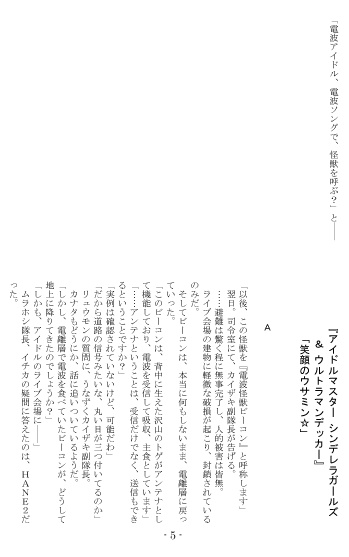 「電波アイドル、電波ソングで、怪獣を呼ぶ？」と――
『アイドルマスター シンデレラガールズ
＆ ウルトラマンデッカー』
「笑顔のウサミン☆」
A
「以後、この怪獣を『電波怪獣ビーコン』と呼称します」
翌日。司令室にて、カイザキ副隊長が告げる。
……避難は驚く程に無事完了し、人的被害は皆無。
ライブ会場の建物に軽微な破損が起こり、封鎖されている
のみだ。
そしてビーコンは、本当に何もしないまま、電離層に戻っ
ていった。
「このビーコンは、背中に生えた沢山のトゲがアンテナとし
て機能しており、電波を受信して吸収、主食としています」
「……アンテナということは、受信だけでなく、送信もでき
るということですか？」
「実例は確認されていないけど、可能だわ」
「だから道路の信号みたいな、丸い目が三つ付いてるのか」
リュウモンの質問に、うなずくカイザキ副隊長。
カナタもどうにか、話に追いついているようだ。
「しかし、電離層で電波を食べていたビーコンが、どうして
地上に降りてきたのでしょうか？」
「しかも、アイドルのライブ会場に――」
ムラホシ隊長、イチカの疑問に答えたのは、HANE2だ
った。
- 5 -